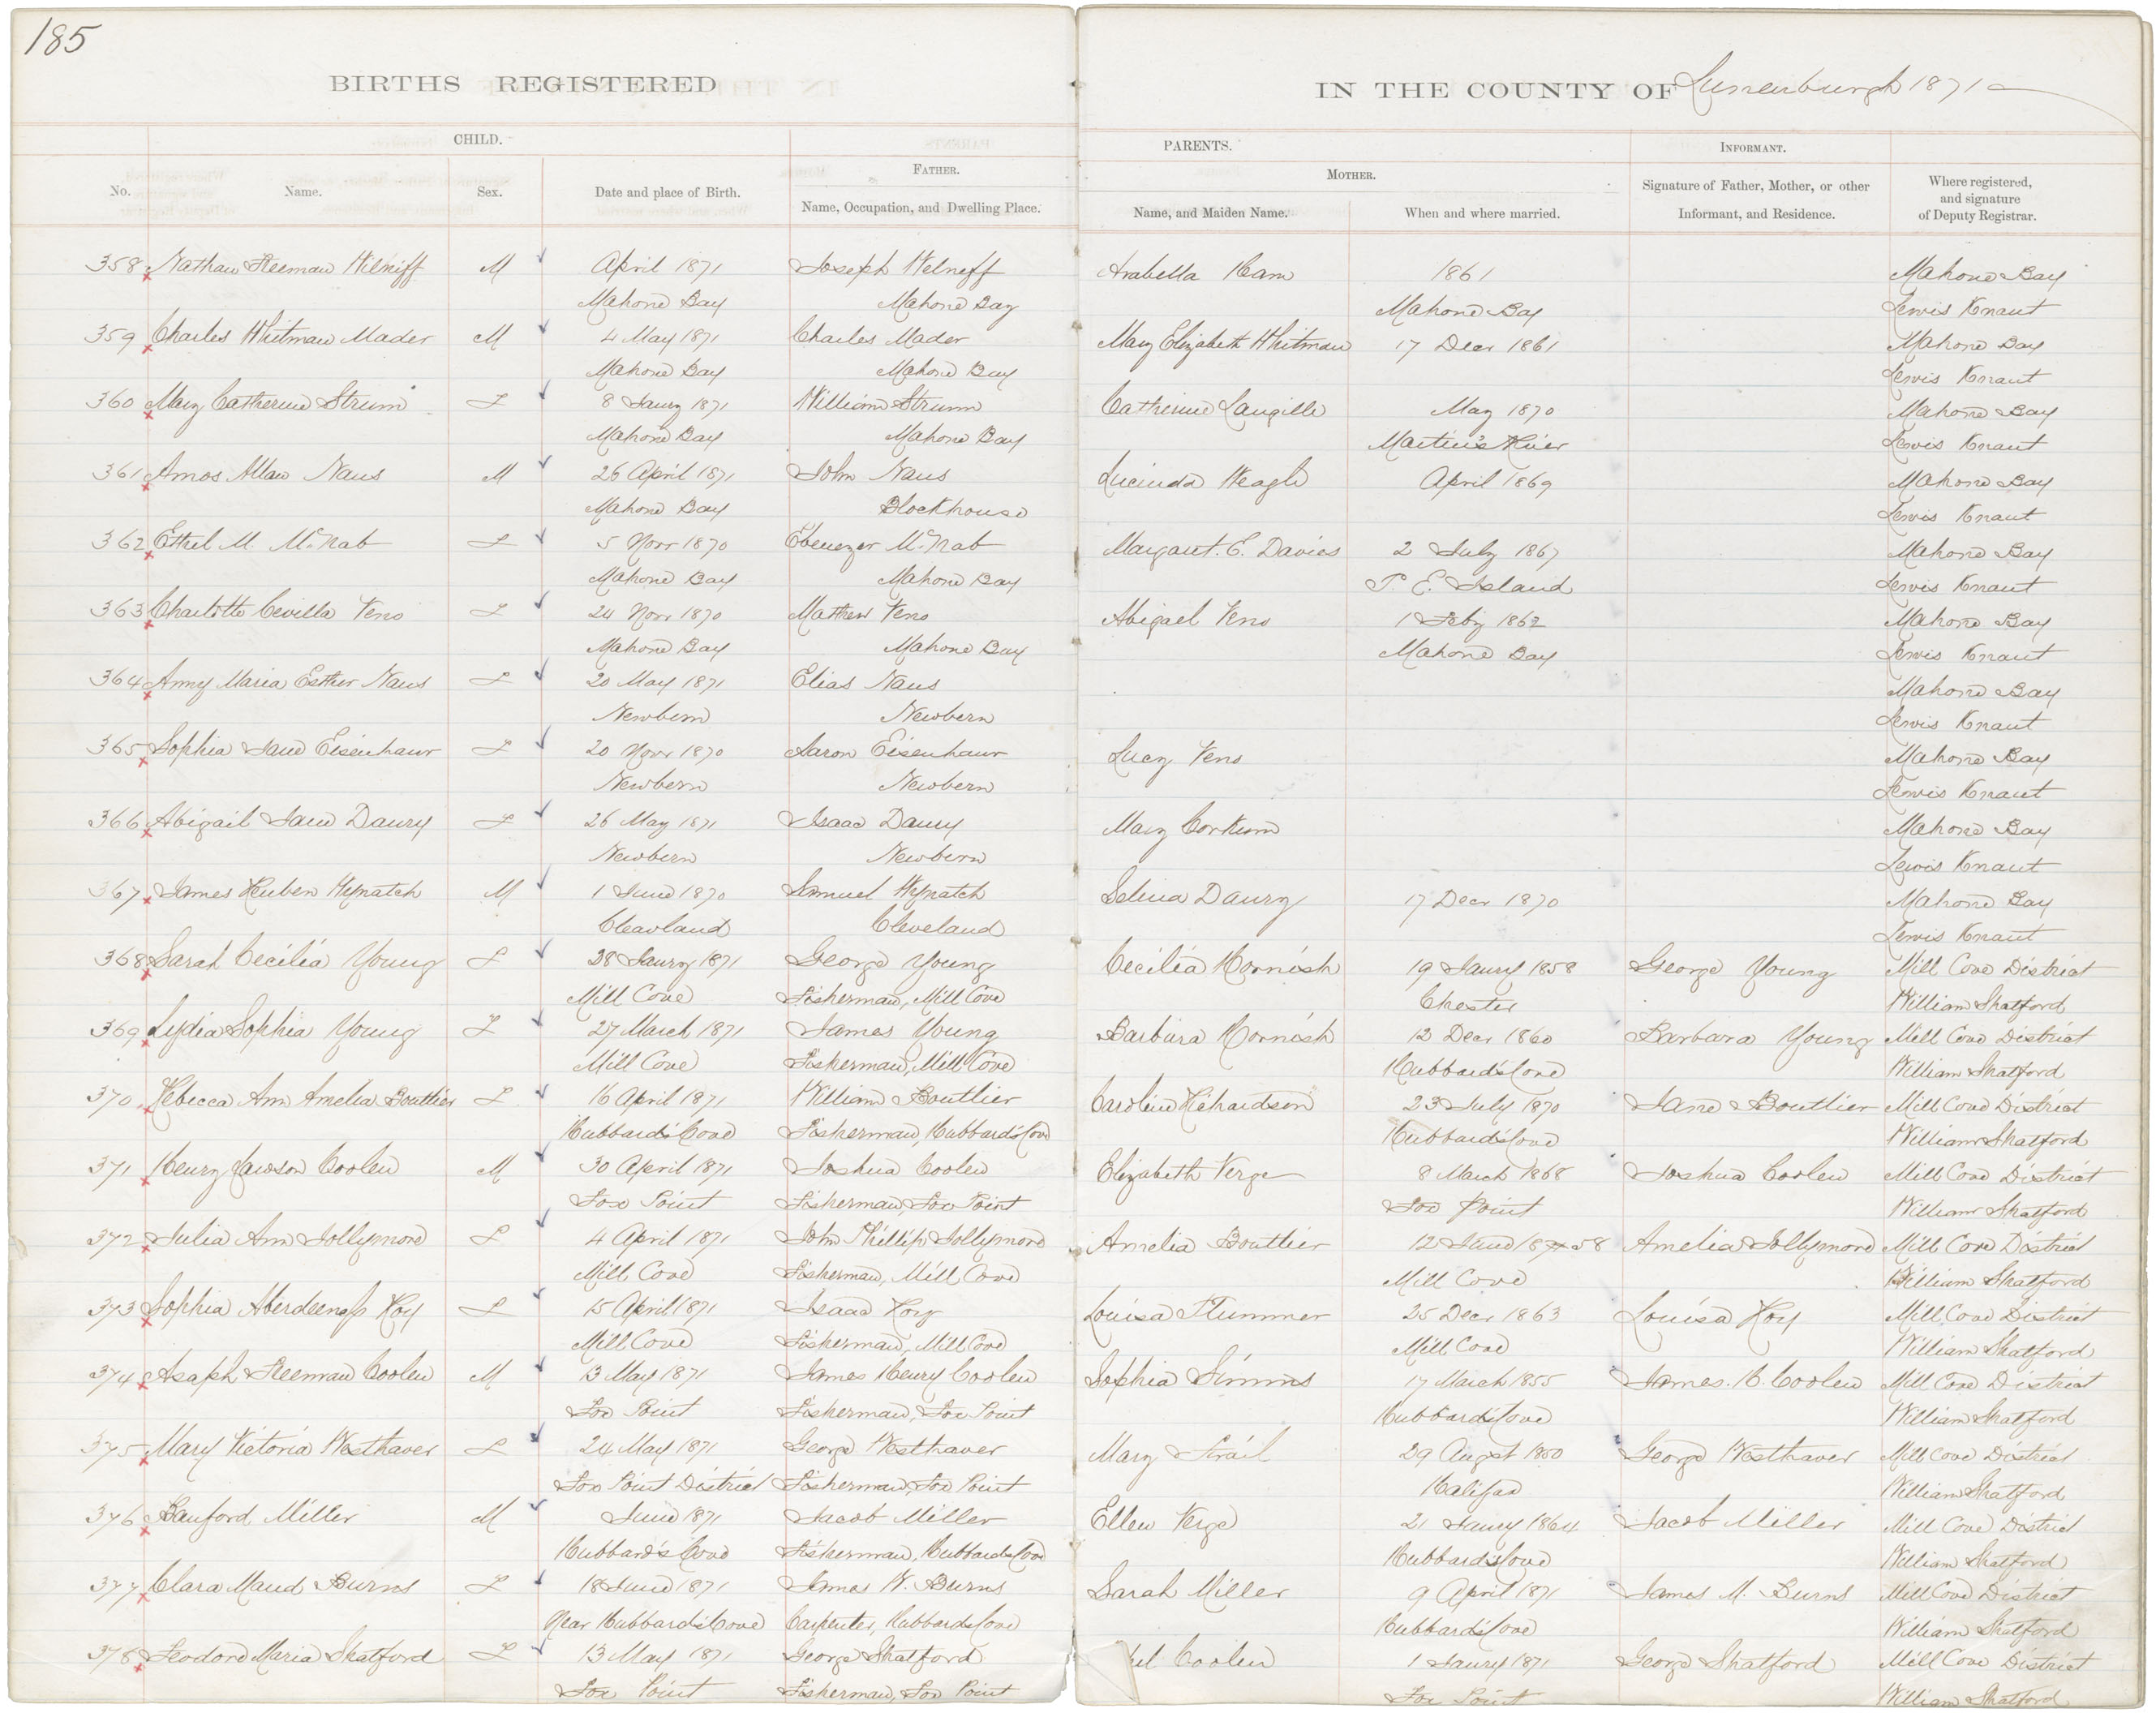 185
BIRTHS REGISTERED IN THE COUNTY OF Lunenburgh 1871
CHILD. PARENTS. INFORMANT.
FATHER. MOTHER.
No. Name. Sex. Date and place of Birth. Name, Occupation, and Dwelling Place. Name, and Maiden Name. When and where married. Signature of Father, Mother, or other Informant, and Residence. Where registered, and signature of Deputy Registrar.
358 Nathan Freeman Wilneff M April 1871 Joseph Welneff Arabella Ham 1861 Mahone Bay
Mahone Bay Mahone Bay Mahone Bay Lewis Knaut
359 Charles Whitman Mader M 4 May 1871 Charles Mader Mary Elizabeth Whitman 17 Decr 1861 Mahone Bay
Mahone Bay Mahone Bay Lewis Knaut
360 Mary Catherine Strum F 8 Jany 1871 William Strum Catherine Langille May 1870 Mahone Bay
Mahone Bay Mahone Bay Martin's River Lewis Knaut
361 Amos Allan Naus M 26 April 1871 John Naus Lucinda Weagle April 1869 Mahone Bay
Mahone Bay Blockhouse Lewis Knaut
362 Ethel M. McNab F 5 Novr 1870 Ebenezer McNab Margaret. E. Davies 2 July 1867 Mahone Bay
Mahone Bay Mahone Bay P. E. Island Lewis Knaut
363 Charlotte Cevilla Veno F 24 Novr 1870 Mathew Veno Abigael Veno 1 Feby 1862 Mahone Bay
Mahone Bay Mahone Bay Mahone Bay Lewis Knaut
364 Anny Maria Esther Naus F 20 May 1871 Elias Naus Mahone Bay
Newbern Newbern Lewis Knaut
365 Sophia Jane Eisenhaur F 20 Novr 1870 Aaron Eisenhaur Lucy Veno Mahone Bay
Newbern Newbern Lewis Knaut
366 Abigail Jane Daury F 26 May 1871 Isaac Daury Mary Corkum Mahone Bay
Newbern Newbern Lewis Knaut
367 James Reuben Wynatch M 1 June 1870 Samuel Wynatch Selina Daury 17 Decr 1870 Mahone Bay
Cleavland Cleveland Lewis Knaut
368 Sarah Cecilia Young F 28 Jany 1871 George Young Cecilia Kornish 19 Jany 1858 George Young Mill Cove District
Mill Cove Fisherman, Mill Cove Chester William Shatford
369 Lydia Sophia Young F 27 March 1871 James Young Barbara Kornish 12 Decr 1860 Barbara Young Mill Cove District
Mill Cove Fisherman, Mill Cove Hubbard's Cove William Shatford
370 Rebecca Ann Amelia Boutlier F 16 April 1871 William Boutlier Caroline Richardson 23 July 1870 Jane Boutlier Mill Cove District
Hubbard's Cove Fisherman, Hubbard's Cove Hubbard's Cove William Shatford
371 Henry Lawson Coolen M 30 April 1871 Joshua Coolen Elizabeth Verge 8 March 1868 Joshua Coolen Mill Cove District
Fox Point Fisherman, Fox Point Fox Point William Shatford
372 Julia Ann Jollymore F 4 April 1871 John Phillip Jollymore Amelia Boutlier 12 June 1858 Amelia Jollymore Mill Cove District
Mill Cove Fisherman, Mill Cove Mill Cove William Shatford
373 Sophia Hoy F 15 April 1871 Isaac Hoy Louisa Plummer 25 Decr 1863 Louisa Hoy Mill Cove District
Mill Cove Fisherman, Mill Cove Mill Cove William Shatford
374 Asaph Freeman Coolen M 13 May 1871 James Henry Coolen Sophia Simms 17 March 1855 James. H. Coolen Mill Cove District
Fox Point Fisherman, Fox Point Hubbard's Cove William Shatford
375 Mary Victoria Westhaver F 24 May 1871 George Westhaver Mary 29 Augst 1850 George Westhaver Mill Cove District
Fox Point District Fisherman, Fox Point Halifax William Shatford
376 Sanford Miller M June 1871 Jacob Miller Ellen Verge 21 Jany 1864 Jacob Miller Mill Cove District
Hubbard's Cove Fisherman, Hubbards Cove Hubbard's Cove William Shatford
377 Clara Maud Burns F 18 June 1871 James W. Burns Sarah Miller 9 April 1871 James M. Burns Mill Cove District
Near Hubbard's Cove Carpenter, Hubbards Cove Hubbard's Cove William Shatford
378 Feodore Maria Shatford F 13 May 1871 George Shatford Coolen 1 Jany 1871 George Shatford Mill Cove District
Fox Point Fisherman, Fox Point Fox Point William Shatford